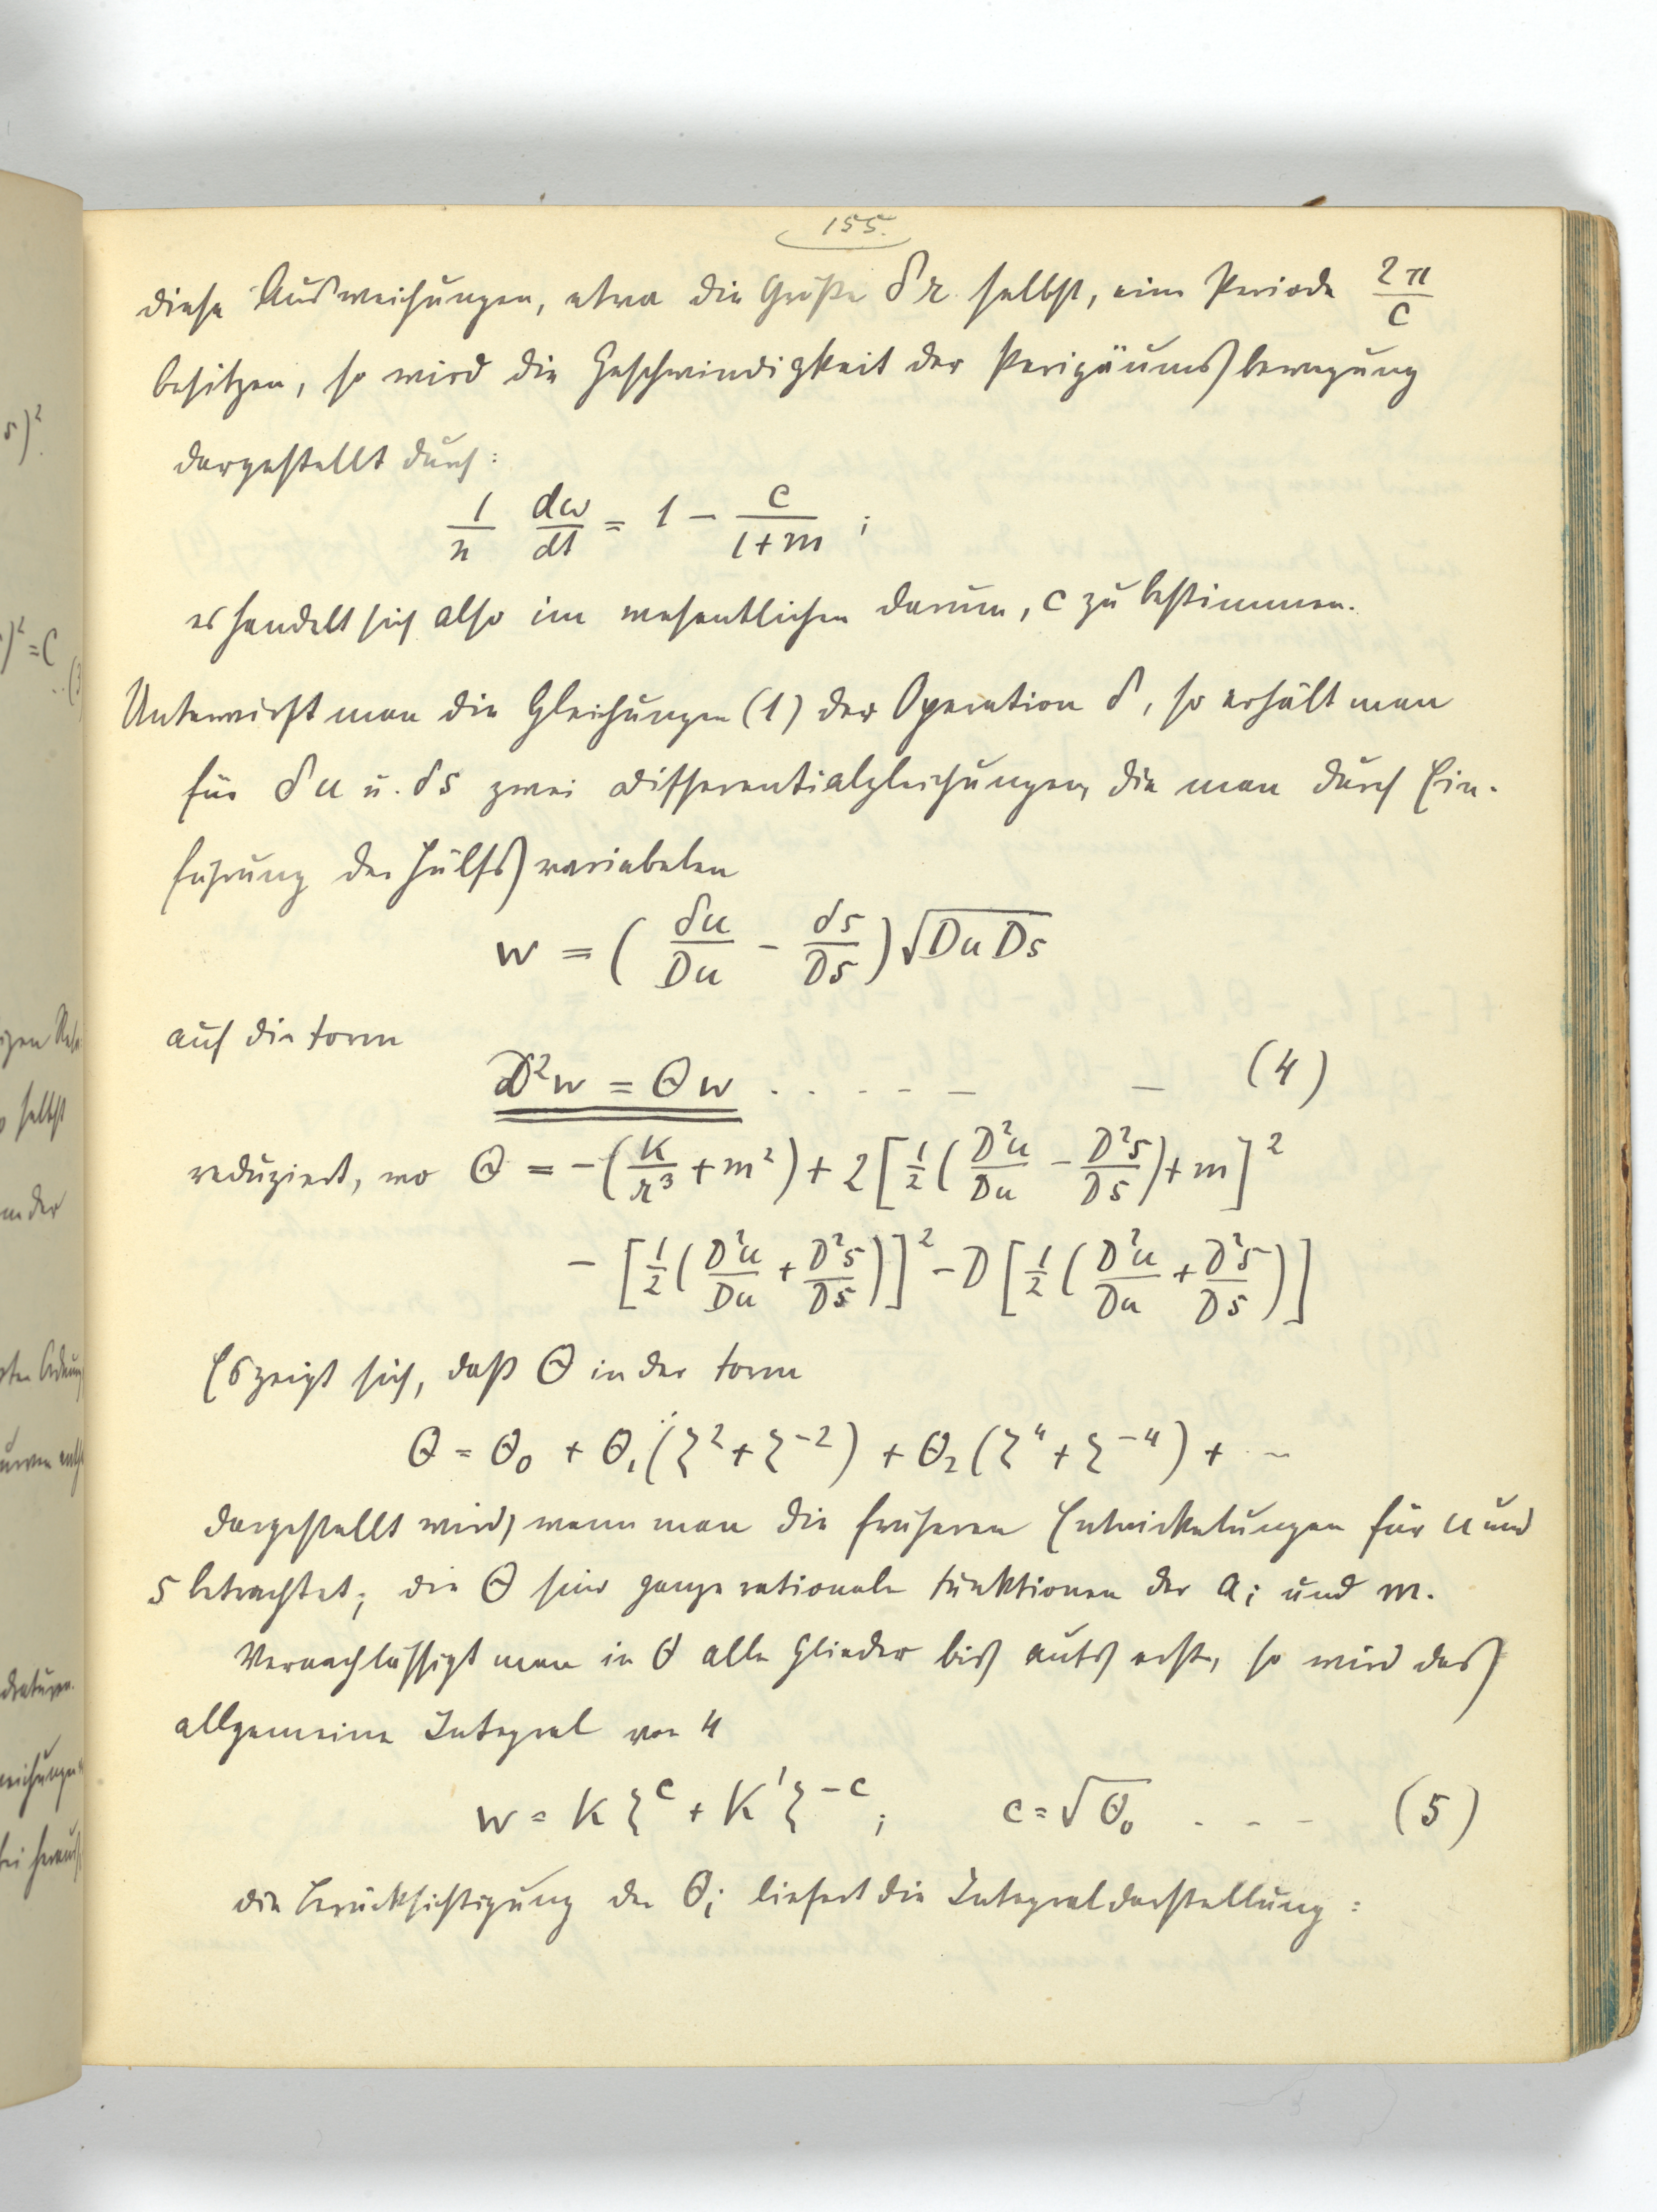 155.
diese Ausweichungen, etwa die Größe δr selbst, eine Periode 2π/c
besitzen, so wird die Geschwindigkeit der Perigäumsbewegung
dargestellt durch:
1/n dω/dt = 1 − c/(1+m) ;
es handelt sich also im wesentlichen darum, c zu bestimmen.
Unterwirft man die Gleichungen (1) der Operation δ, so erhält man
für δu u. δs zwei Differentialgleichungen, die man durch Ein-
führung der Hülfsvariabelen
w = ( δu/Du − δs/Ds ) √DuDs
auf die Form
D²w = Θw . . . . – – – (4)
reduziert, wo Θ = −(K/r³ + m²) + 2[½(D²u/Du − D²s/Ds) + m]²
− [½(D²u/Du + D²s/Ds)]² − D[½(D²u/Du + D²s/Ds)]
Es zeigt sich, daß Θ in der Form
Θ = Θ₀ + Θ₁(ζ² + ζ⁻²) + Θ₂(ζ⁴ + ζ⁻⁴) + · –
dargestellt wird, wenn man die früheren Entwickelungen für u und
s betrachtet; die Θ sind ganze rationale Funktionen der aᵢ und m.
Vernachlässigt man in Θ alle Glieder bis aufs erste, so wird das
allgemeine Integral von 4
w = Kζ^c + K'ζ^−c ; c = √Θ₀ . - - – (5)
die Berücksichtigung der Θᵢ liefert die Integraldarstellung :
5)².
)² = C
..(3
selbst
in der